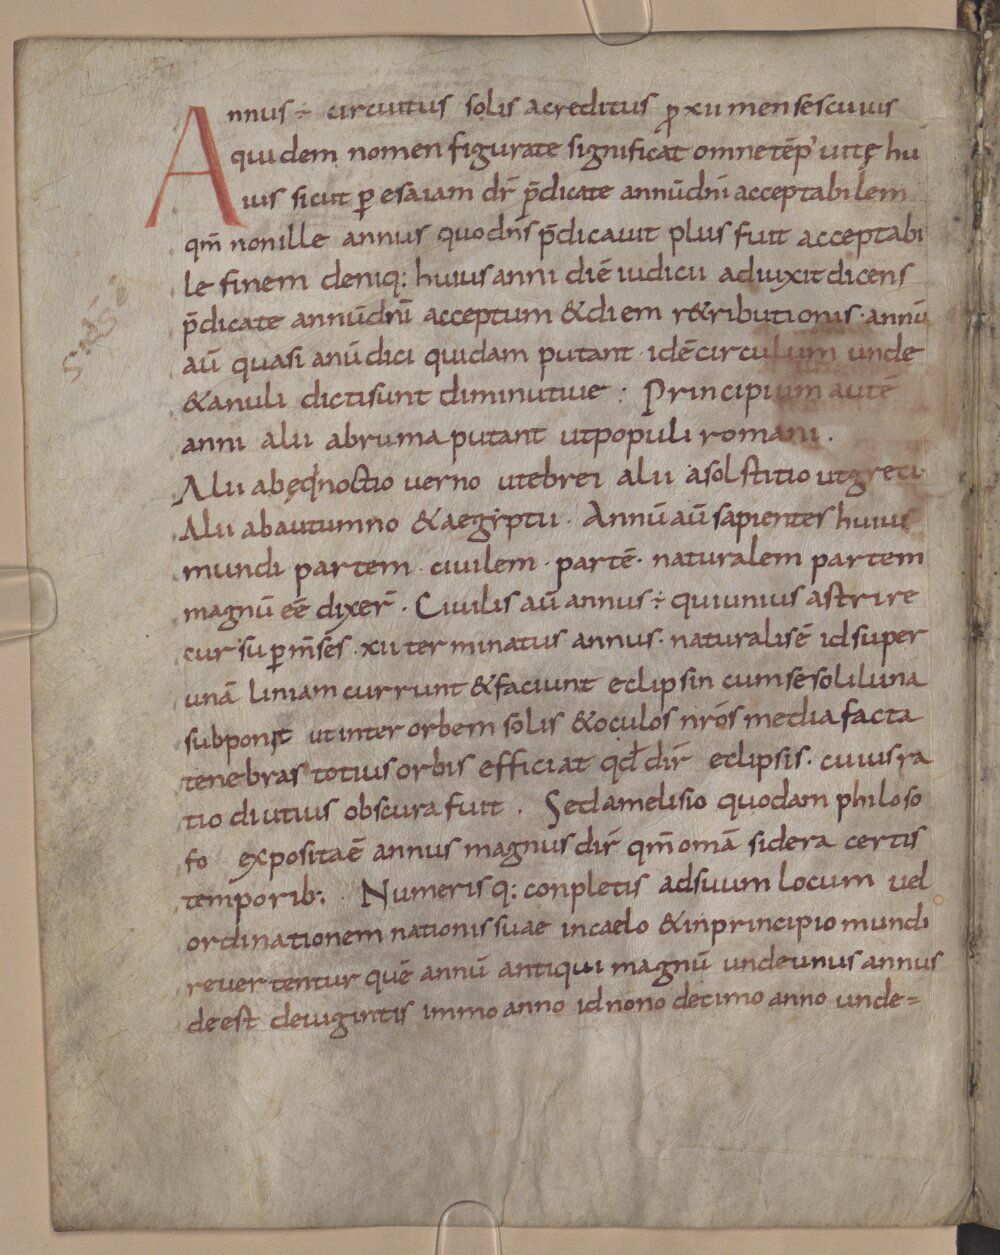 Annus ÷ circuitus solis acreditus ꝑ xii mensescuius
quidem nomen figurate significat omnetēp' uitę hu
ius sicut ꝑ esaiam dr̄ p̄dicate annūdnī acceptabilem
qm̄ nonille annus quodn̄s p̄dicauit plus fuit acceptabi
le finem deniq: huius anni diē iudicii adiuxit dicens
p̄dicate annūdnī acceptum &diem r&ributionis · annū
aū quasi anūdici quidam putant · idē circulum unde
&anuli dictisunt diminutiue : Principium autē
anni alii abruma putant utpopuli romani .
Alii abęq̇noctio uerno utebrei alii asolstitio utgreci
Alii abautumno &aegẏptii · Annū aū sapientes huius
mundi partem · ciuilem · partē · naturalem partem
magnū eē dixer̄ · Ciuilis aū annus ÷ quiunius astrire
cursu ꝑ m̄ses · xii terminatus annus · naturalisē idsuper
unā liniam currunt &faciunt eclipsin cumsesoliluna
subponit ut inter orbem solis &oculos nrōs media facta
tenebras totius orbis efficiat qđ dir̄ eclipsis · cuius ra
tio diutius obscura fuit . Sed amelisio quodam philoso
fo expositaē annus magnus dir̄ qm̄ omā sidera certis
temporib: · Numeris q: conpletis adsuum locum uel
ordinationem nationis suae incaelo &inprincipio mundi
reuertentur quē annū antiqui magnū undeunus annus
deest deuigintis immo anno id nono decimo anno unde=